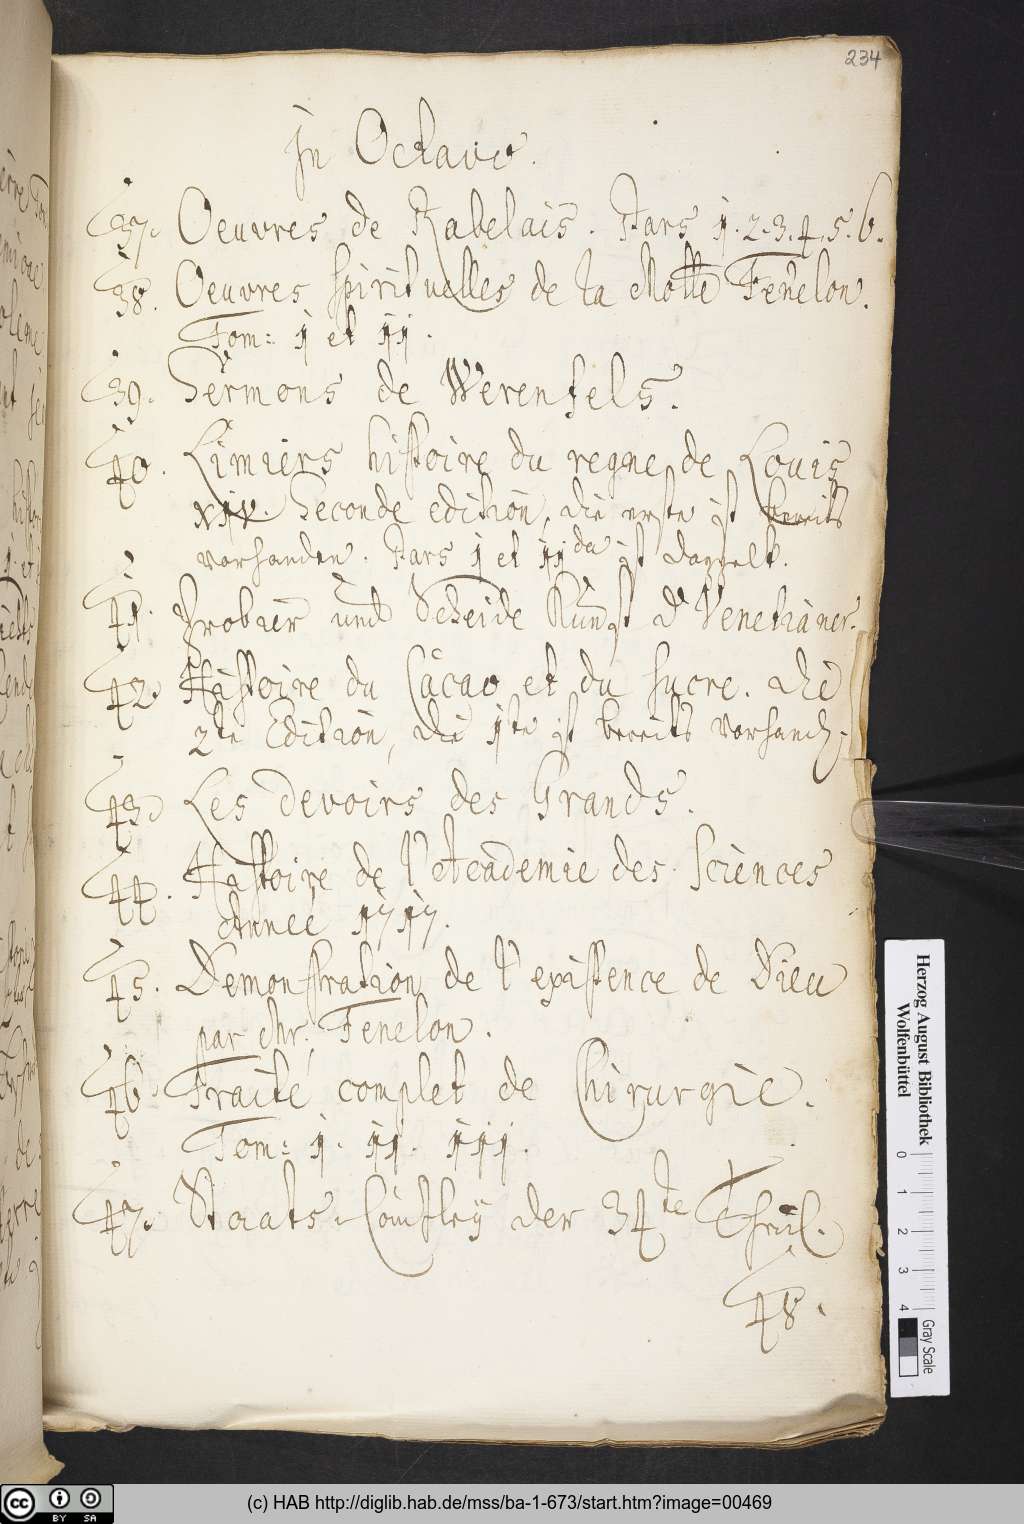 234
In Octavo.
37. Oeuvres de Rabelais. Pars 1. 2. 3. 4. 5. 6.
38. Oeuvres spirituelles de la Motte Fenelon.
Tom: I et II.
39. Sermons de Werenfels.
40. Limiers histoire du regne de Louis
XIV. Seconde edition, die erste ist bereits
vorhanden. Pars I et IIda ist doppelt.
41. Probier und Scheide Kunst d' Venetianer.
42. Histoire du Cacao et du sucre. die
2te Edition, die 1ste ist bereits vorhand.
43. Les devoirs des Grands.
44. Histoire de l'Academie des Sciences
Anneé 1717.
45. Demonstration de l'existence de Dieu
par Mr. Fenelon.
46. Traité complet de Chirurgie.
Tom: I. II. III.
47. Staats-Cantzley der 34te Theil.
48.
Herzog August Bibliothek
Wolfenbüttel
0 1 2 3 4
Gray Scale
(c) HAB http://diglib.hab.de/mss/ba-1-673/start.htm?image=00469
cc BY SA